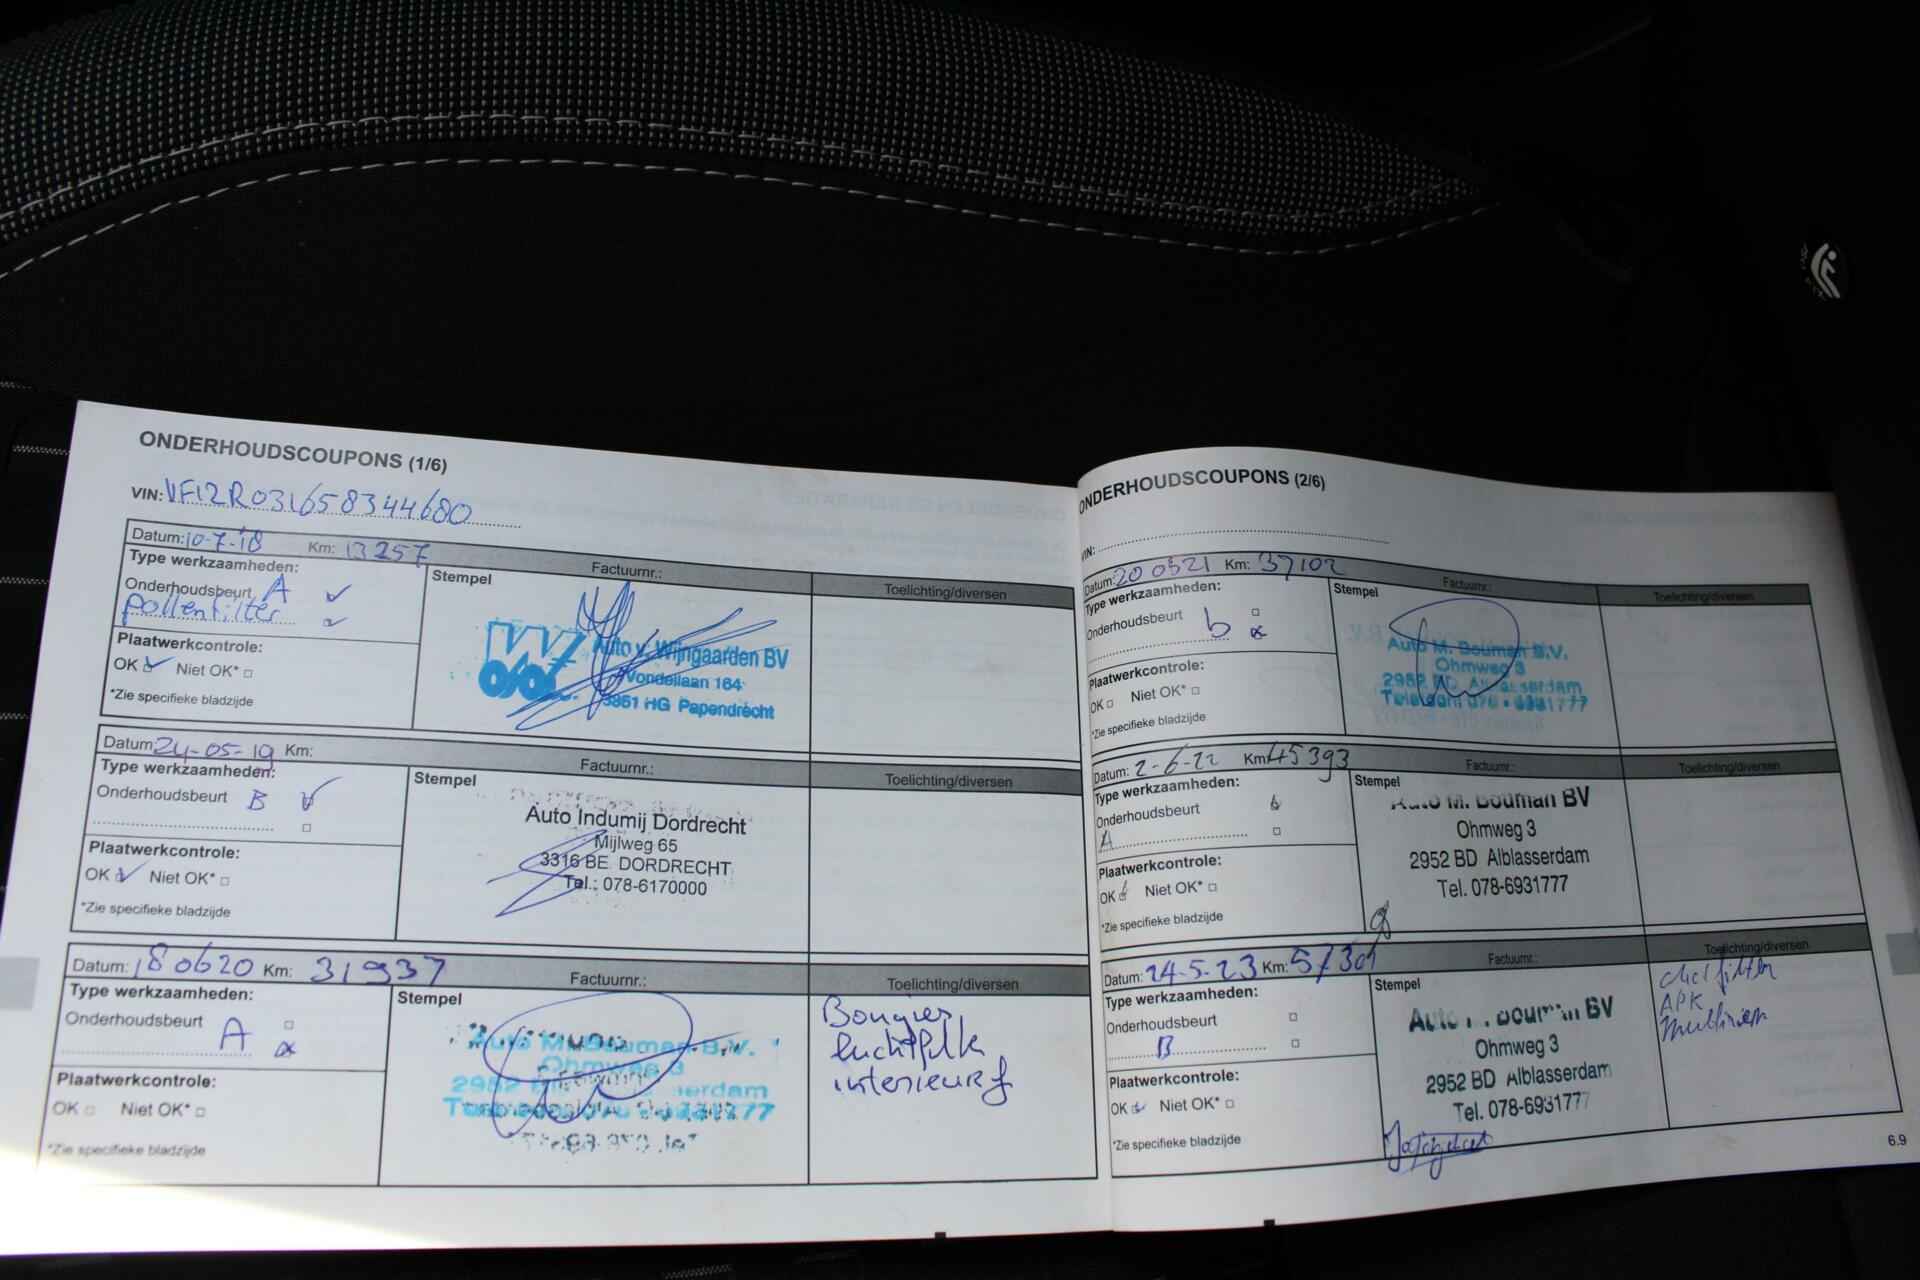 ONDERHOUDSCOUPONS (1/6)
VIN: VF12R031658344680
Datum: 10-7-18 Km: 13257 Factuurnr.:
Type werkzaamheden:
Stempel
Toelichting/diversen
Onderhoudsbeurt A
pollenfilter
Plaatwerkcontrole:
OK Niet OK*
*Zie specifieke bladzijde
Auto v. Wijngaarden BV
Vondellaan 164
3351 HG Papendrecht
Datum: 24-05-19 Km: Factuurnr.:
Type werkzaamheden:
Stempel
Toelichting/diversen
Onderhoudsbeurt B
Plaatwerkcontrole:
OK Niet OK*
*Zie specifieke bladzijde
Auto Indumij Dordrecht
Mijlweg 65
3316 BE DORDRECHT
Tel.: 078-6170000
Datum: 180620 Km: 31937 Factuurnr.:
Type werkzaamheden:
Stempel
Toelichting/diversen
Onderhoudsbeurt
A
Plaatwerkcontrole:
OK Niet OK*
*Zie specifieke bladzijde
Auto M. Bouman B.V.
Ohmweg 3
Bougies
interieur f
ONDERHOUDSCOUPONS (2/6)
VIN:
Datum: 200521 Km: 37102 Factuurnr.:
Type werkzaamheden:
Stempel
Toelichting/diversen
Onderhoudsbeurt
b
Plaatwerkcontrole:
OK Niet OK*
*Zie specifieke bladzijde
Auto M. Bouman B.V.
Ohmweg 3
2952 BD Alblasserdam
Telefoon 078 - 6931777
Datum: 2-6-22 Km: 45393 Factuurnr.:
Type werkzaamheden:
Stempel
Toelichting/diversen
Onderhoudsbeurt
A
Plaatwerkcontrole:
OK Niet OK*
*Zie specifieke bladzijde
Auto M. Bouman BV
Ohmweg 3
2952 BD Alblasserdam
Tel. 078-6931777
Datum: 24-5-23 Km: Factuurnr.:
Type werkzaamheden:
Stempel
Toelichting/diversen
Onderhoudsbeurt
B
Plaatwerkcontrole:
OK Niet OK*
*Zie specifieke bladzijde
Auto M. Bouman BV
Ohmweg 3
2952 BD Alblasserdam
Tel. 078-6931777
APK
multiriem
6.9